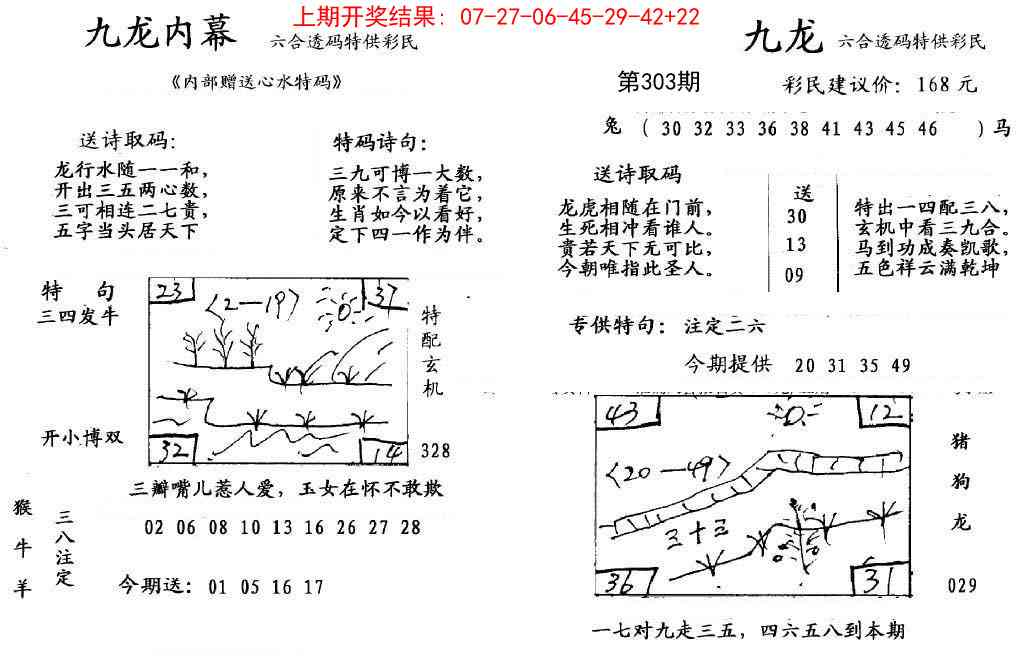 上期开奖结果: 07-27-06-45-29-42+22
九龙内幕 六合透码特供彩民
《内部赠送心水特码》
送诗取码:
龙行水随一一和,
开出三五两心数,
三可相连二七贵,
五字当头居天下
特码诗句:
三九可博一大数,
原来不言为着它,
生肖如今以看好,
定下四一作为伴。
特 句
三四发牛
开小博双
23
37
<2—19>
32
14
特配玄机
328
三瓣嘴儿惹人爱, 玉女在怀不敢欺
猴牛羊
三八注定
02 06 08 10 13 16 26 27 28
今期送: 01 05 16 17
九龙 六合透码特供彩民
第303期 彩民建议价: 168元
兔 ( 30 32 33 36 38 41 43 45 46 ) 马
送诗取码
龙虎相随在门前,
生死相冲看谁人。
贵若天下无可比,
今朝唯指此圣人。
送
30
13
09
特出一四配三八,
玄机中看三九合。
马到功成奏凯歌,
五色祥云满乾坤
专供特句: 注定二六
今期提供 20 31 35 49
43
12
<20—49>
三十三
36
31
猪
狗
龙
029
一七对九走三五, 四六五八到本期